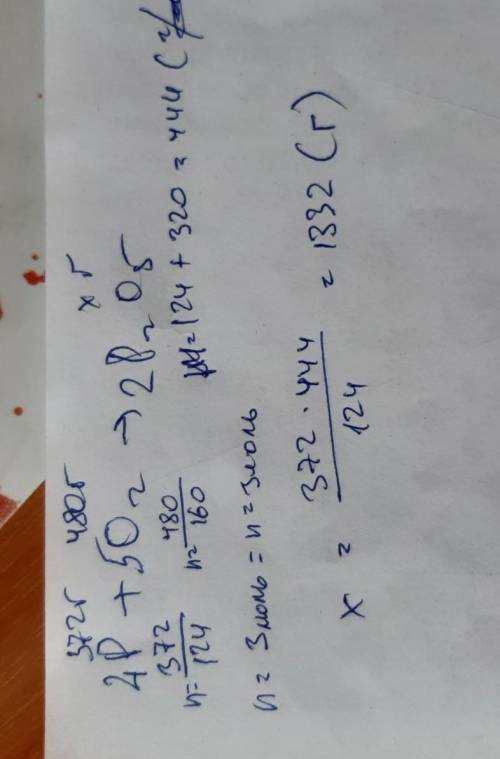 372г 480г х г
4P + 5O₂ → 2P₂O₅
n = 372/124 n = 480/160 M = 124 + 320 = 444 (г/
n = 3моль = n = 3моль
x = 372 · 444 / 124 = 1332 (г)